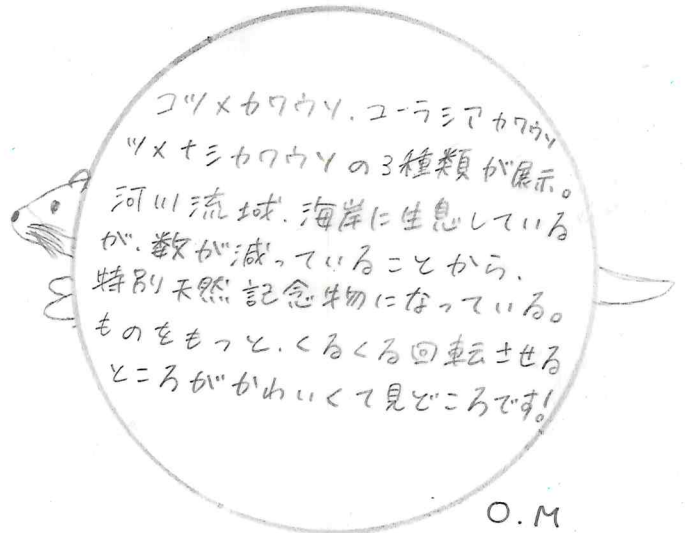 コツメカワウソ、ユーラシアカワウソ
ツメナシカワウソの3種類が展示。
河川流域、海岸に生息している
が、数が減っていることから、
特別天然記念物になっている。
ものをもっと、くるくる回転させる
ところがかわいくて見どころです!
O.M